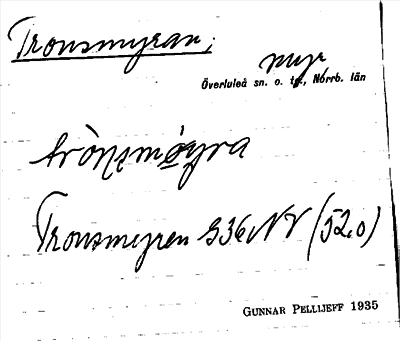 Tronsmyran,
myr
Överluleå sn. o. tg., Norrb. län
trònsmøyra
Tronsmyren S36NV (52,0)
GUNNAR PELLIJEFF 1935